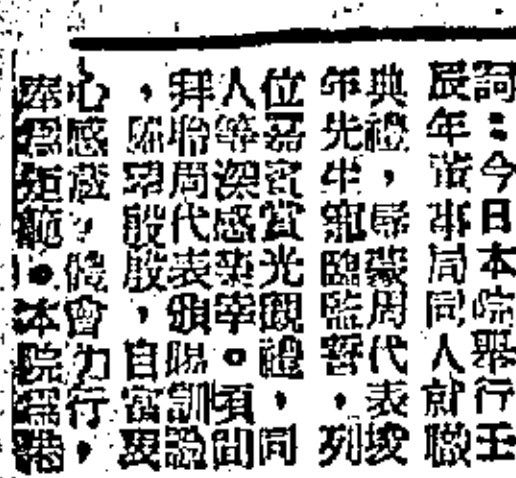 詞：今日本院舉行壬
辰年董事局同人就職
典禮，辱蒙周代表埈
年先生寵臨監誓，列
位嘉賓賞光觀禮，同
人等深感榮幸。頃間
拜聆周代表頒賜訓詞
，勗勉殷殷，自當衷
心感藏，體會力行，
奉為矩範。本院